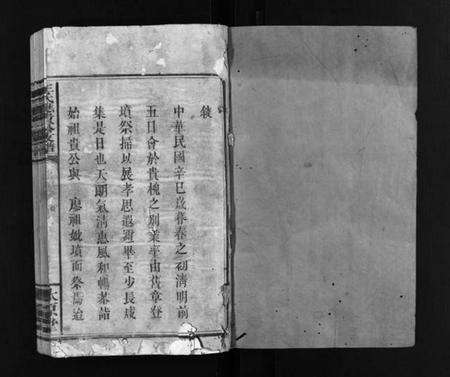 後
中華民國辛巳歲暮春之初清明前
五日會於貴槐之別業率由舊章登
墳祭掃以展孝思遐邇畢至少長咸
集是日也天朗氣清惠風和暢恭詣
始祖貴公與 庭祖妣墳而祭掃迨